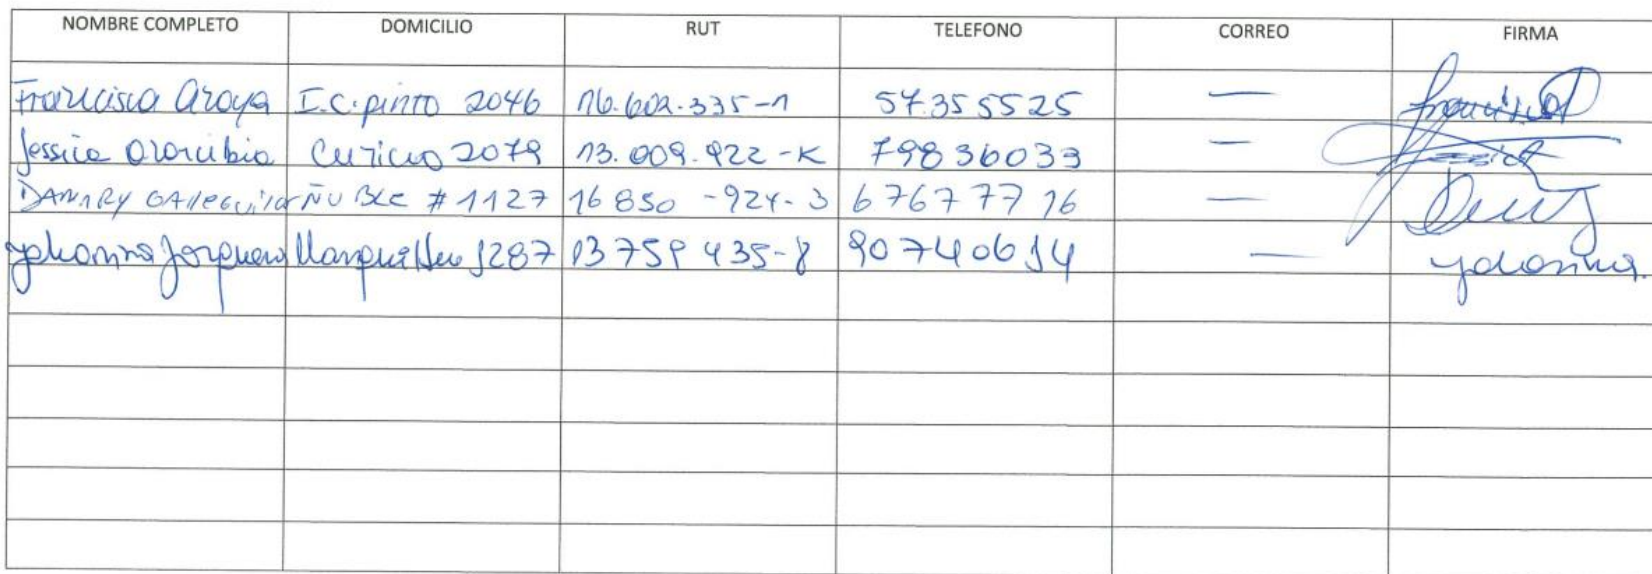 NOMBRE COMPLETO DOMICILIO RUT TELEFONO CORREO FIRMA
Francisca Araya I.C. pinto 2046 16.602.335-1 57355525 — Francisca
Jessica Ararcibia Curicuo 2079 13.009.922-K 79836033 —
DANARY GAlleguillos ÑUBLE #1127 16 850 -924-3 67677716 —
Johanna Jorquera 1287 13759435-8 90740614 — Johanna.